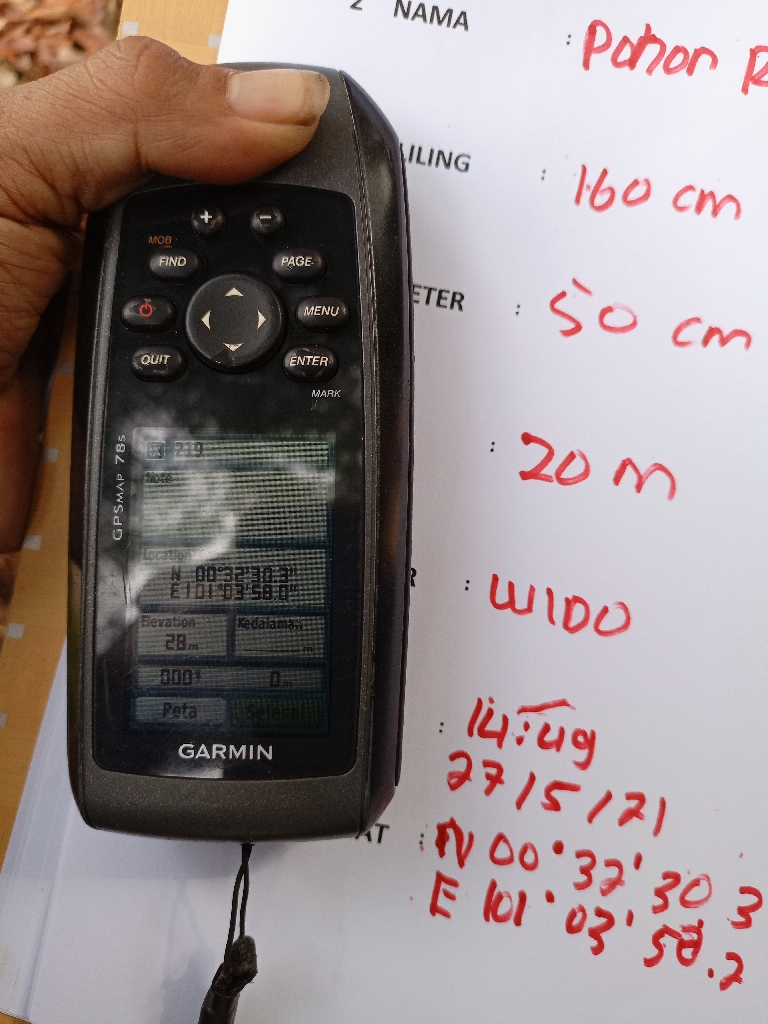 2 NAMA : Pohon
LILING : 160 cm
ETER : 50 cm
: 20 m
R : WIDO
: 14:49
27/5/21
AT : N 00°32'30 3
E 101°03'58.2
+ −
MOB
FIND PAGE
MENU
QUIT ENTER
MARK
GPSMAP 78s
219
Note
Location
N 00°32'30.3"
E101°03'58.0"
Elevation Kedalaman
28m m
000° 0m
Peta Selesai
GARMIN